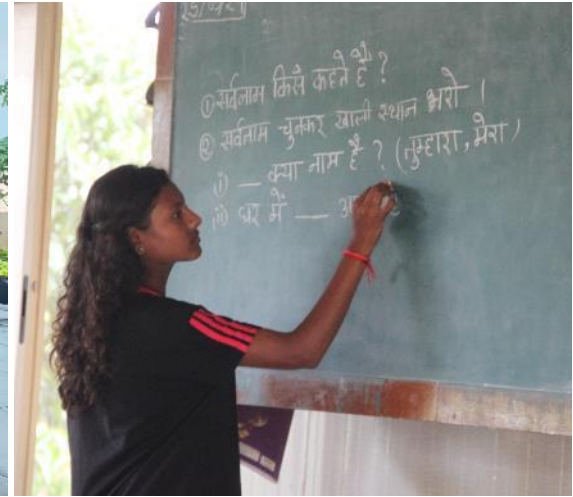 ① सर्वनाम किसे कहते है ?
② सर्वनाम चुनकर खाली स्थान भरो ।
(i) __ क्या नाम है ? (तुम्हारा, मेरा)
(ii) घर में __